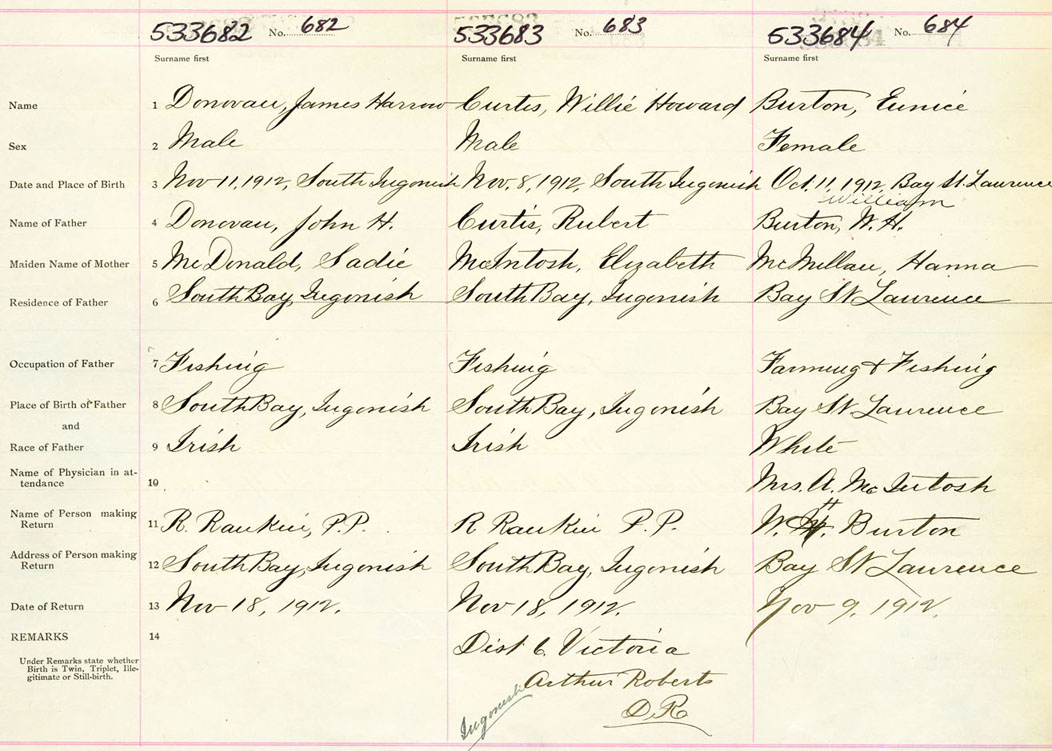 533682 No. 682 533683 No. 683 533684 No. 684
Surname first Surname first Surname first
Name 1 Donovan, James Harrow Curtis, Willie Howard Burton, Eunice
Sex 2 Male Male Female
Date and Place of Birth 3 Nov 11, 1912, South Ingonish Nov. 8, 1912, South Ingonish Oct. 11, 1912, Bay St. Lawrence
William
Name of Father 4 Donovan, John H. Curtis, Rubert Burton, W. H.
Maiden Name of Mother 5 McDonald, Sadie McIntosh, Elizabeth McMillan, Hanna
Residence of Father 6 South Bay, Ingonish South Bay, Ingonish Bay St Lawrence
Occupation of Father 7 Fishing Fishing Farming & Fishing
Place of Birth of Father 8 South Bay, Ingonish South Bay, Ingonish Bay St Lawrence
and
Race of Father 9 Irish Irish White
Name of Physician in at-
tendance 10 Mrs. A. McIntosh
Name of Person making
Return 11 R. Rankin, P.P. R Rankin P.P. W. H. Burton
Address of Person making
Return 12 South Bay, Ingonish South Bay, Ingonish Bay St Lawrence
Date of Return 13 Nov 18, 1912. Nov 18, 1912. Nov 9, 1912
REMARKS 14 Dist 6 Victoria
Under Remarks state whether
Birth is Twin, Triplet, Ille-
gitimate or Still-birth.
Arthur Roberts
D.R.
Ingonish